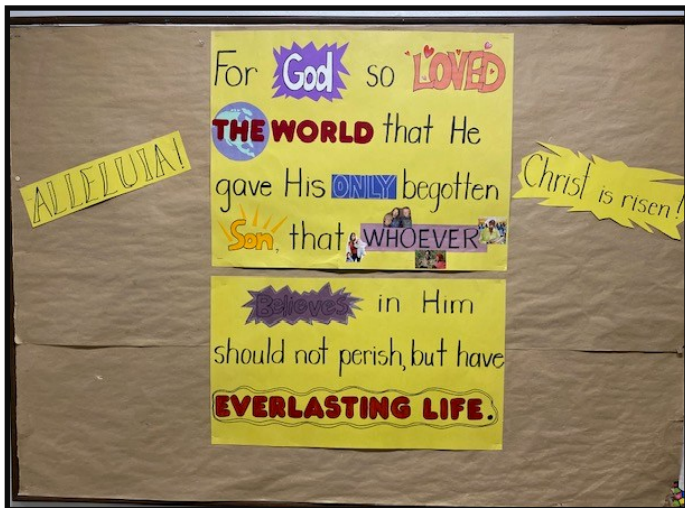 ALLELUIA!
For God so LOVED
THE WORLD that He
gave His ONLY begotten
Son, that WHOEVER
Believes in Him
should not perish, but have
EVERLASTING LIFE.
Christ is risen!